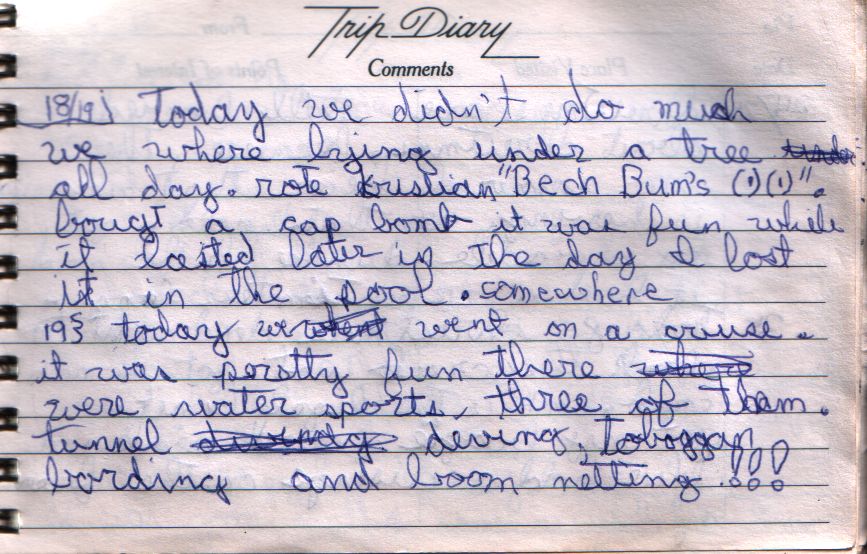 Trip Diary
Comments
18/19 Today we didn't do much
we where lying under a tree
all day. rote Kristian "Bech Bum's (1)(1)".
bougt a cap bomb it was fun while
it lasted later in the day I lost
it in the pool. somewhere
19 today we went on a cruse.
it was pertty fun there
were water sports, three of tham.
tunnel deving, toboggan
bording and boom netting!!!